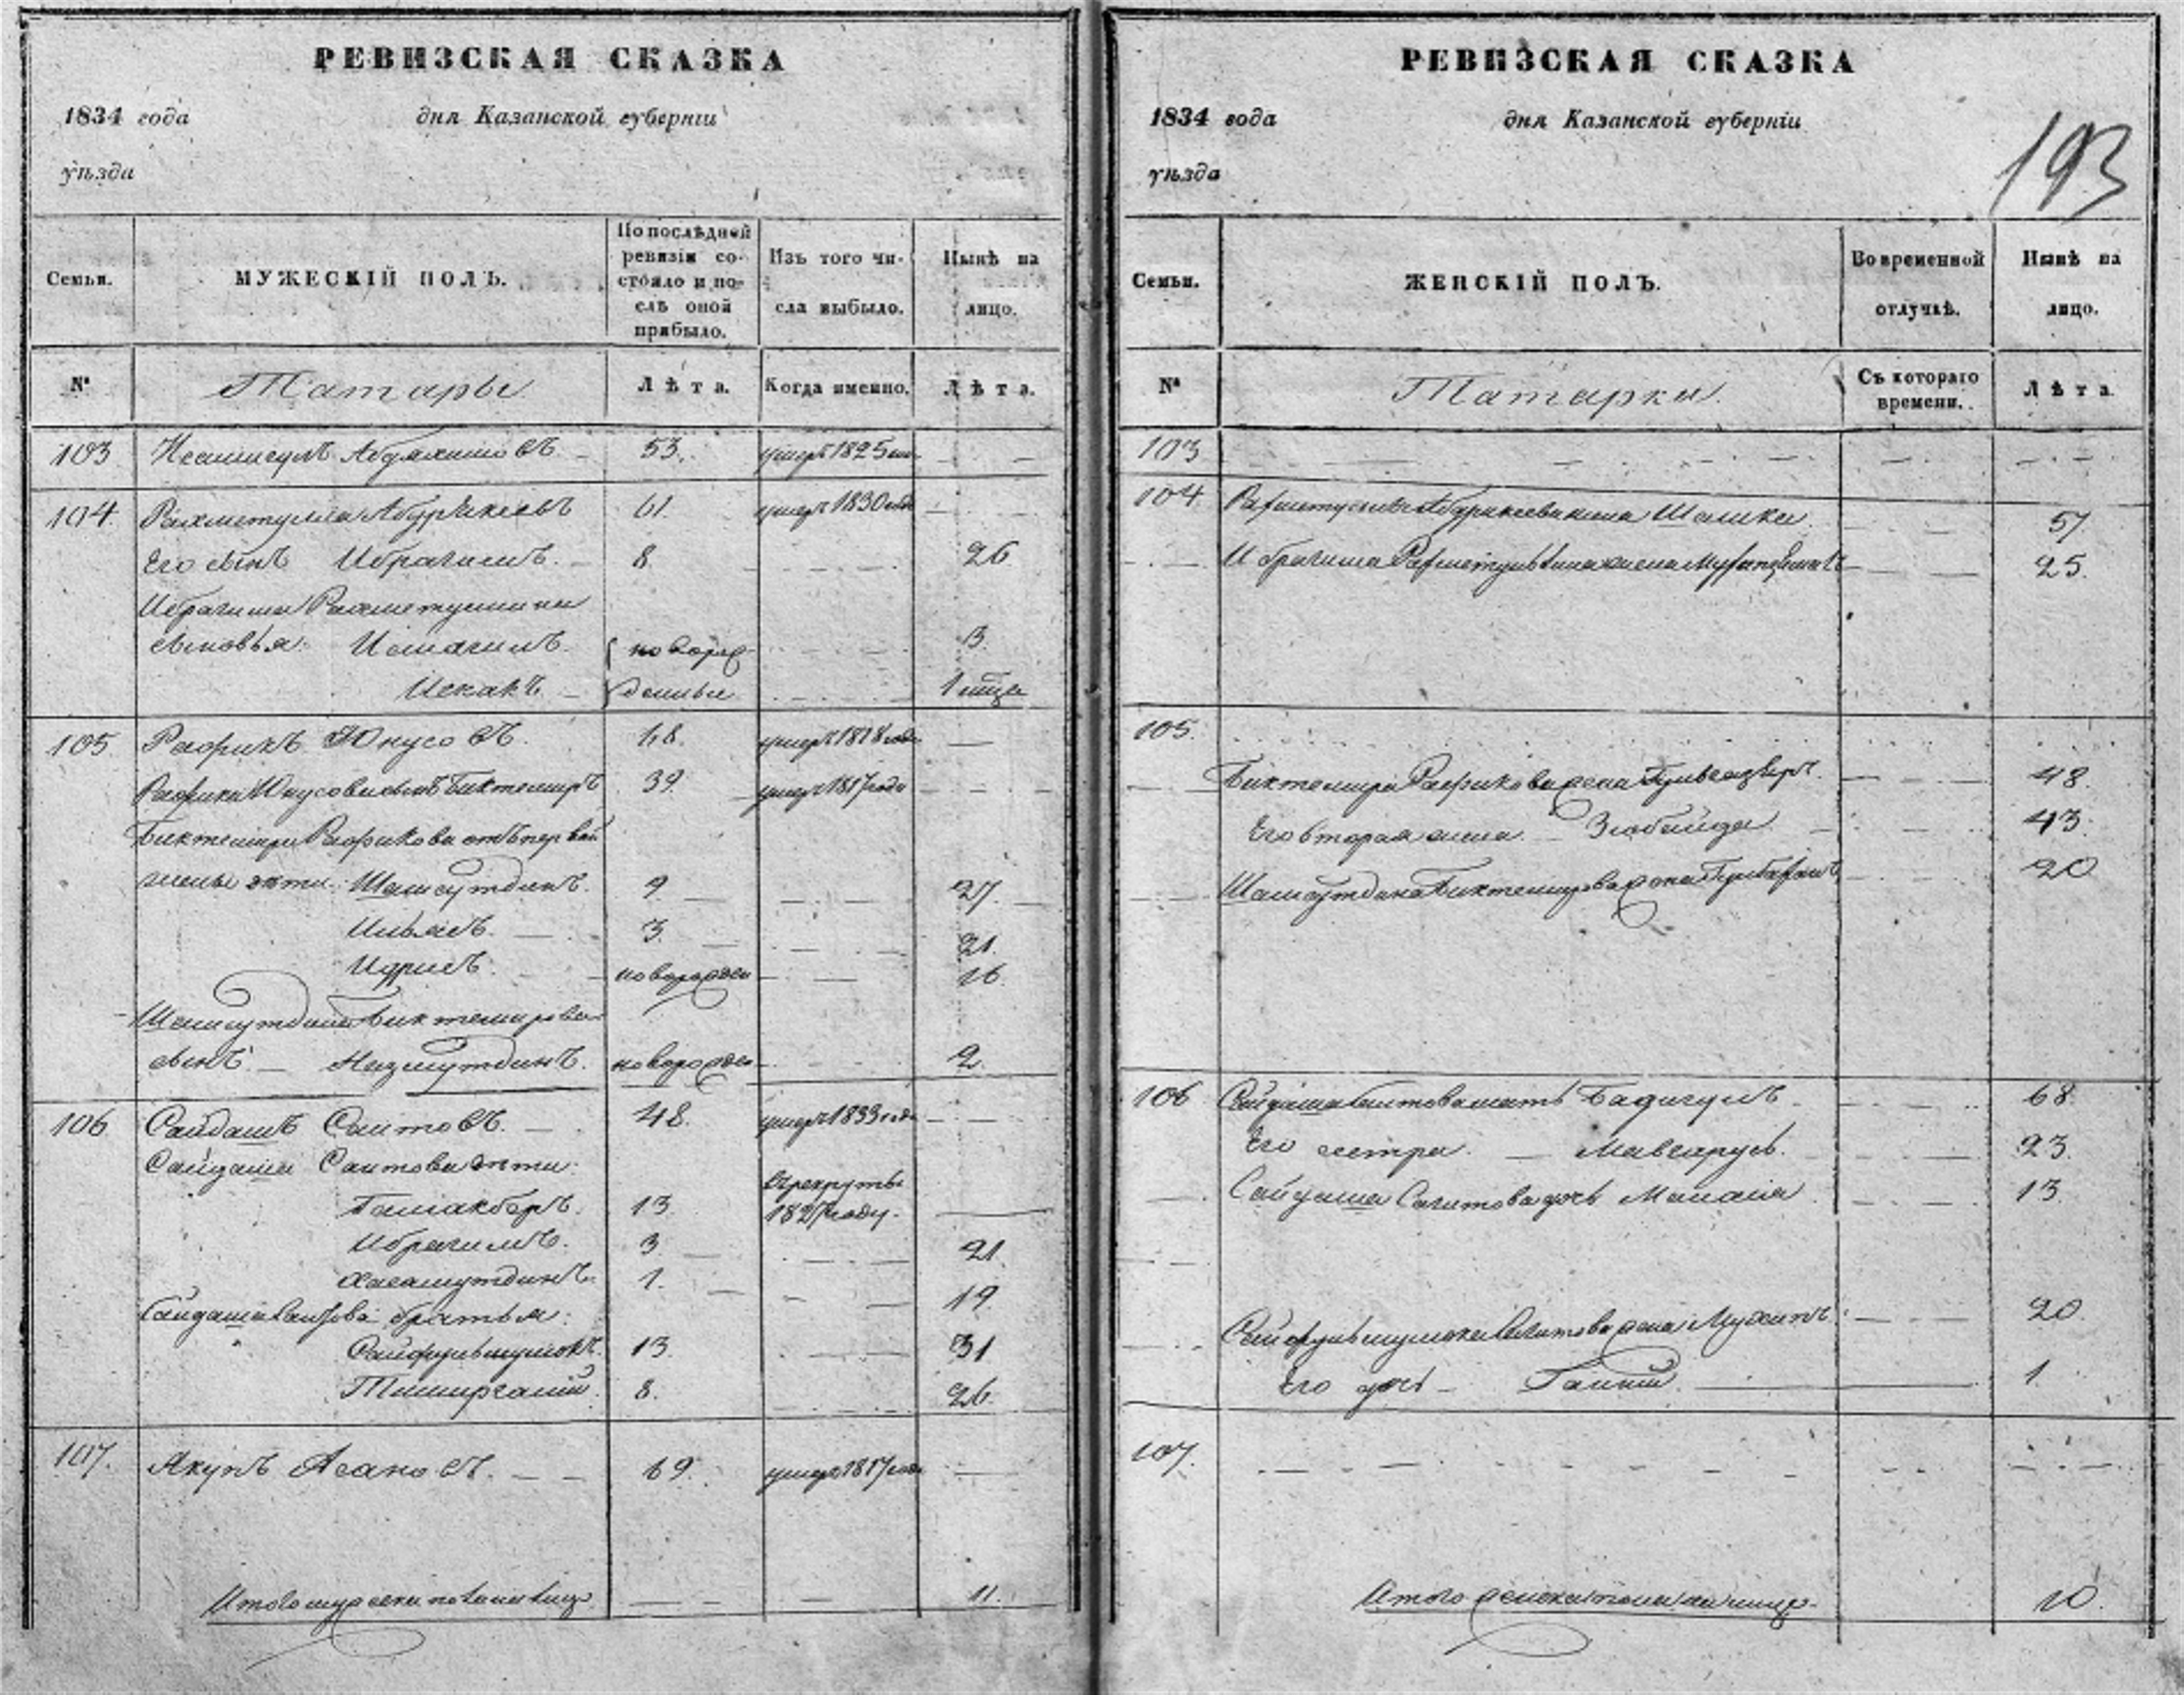 РЕВИЗСКАЯ СКАЗКА
1834 года дня Казанской губерніи
уѣзда
Семьи.
МУЖЕСКІЙ ПОЛЪ.
По послѣдней ревизіи состояло и послѣ оной прибыло.
Изъ того числа выбыло.
Нынѣ на лицо.
№
Татары
Лѣта.
Когда именно.
Лѣта.
103 53. умеръ 1825
104. Рахметулла 61. умеръ 1830 года
Его сынъ Ибрагимъ. 8 26
Ибрагима Рахметуллина
сыновья: Исмагилъ. новорож- 3.
Искакъ денные
105. Рафикъ Юнусовъ. 68. умеръ 1818 года
Рафика Юнусова сынъ Биктемиръ 39. умеръ 1817 года
Биктемира Рафикова отъ первой
жены дѣти: Шамсутдинъ. 9 27.
Ильясъ. 3. 21.
Идрисъ. новорожден 16.
Шамсутдина Биктемирова
сынъ Назмутдинъ. новорожден 2.
106 Сайдашъ Саитовъ. 48. умеръ 1833 года
Сайдаша Саитова дѣти:
въ рекруты
13. 1827 году.
Ибрагимъ. 3. 21.
Хасамутдинъ. 1. 19.
Сайдаша Саитова братья:
Сайфульмулюкъ. 13. 31
Тимиргалій. 8. 26.
107. Якупъ Асановъ. 69. умеръ 1817 года
Итого мужеска пола на лицо 11.
РЕВИЗСКАЯ СКАЗКА
1834 года дня Казанской губерніи
уѣзда
193
Семьи.
ЖЕНСКІЙ ПОЛЪ.
Во временной отлучкѣ.
Нынѣ на лицо.
№
Татарки.
Съ котораго времени.
Лѣта.
103
104 жена 57.
Ибрагима Рахметуллина жена 25.
105.
Биктемира Рафикова жена 48.
Его вторая жена Зюбайда 43.
Шамсутдина Биктемирова жена 20
106 Сайдаша Саитова мать Бадигулъ 68.
Его сестра 23.
Сайдаша Саитова дочь 13.
Сайфульмулюка Саитова жена 20.
Его дочь 1.
107.
Итого женска пола на лицо 10.